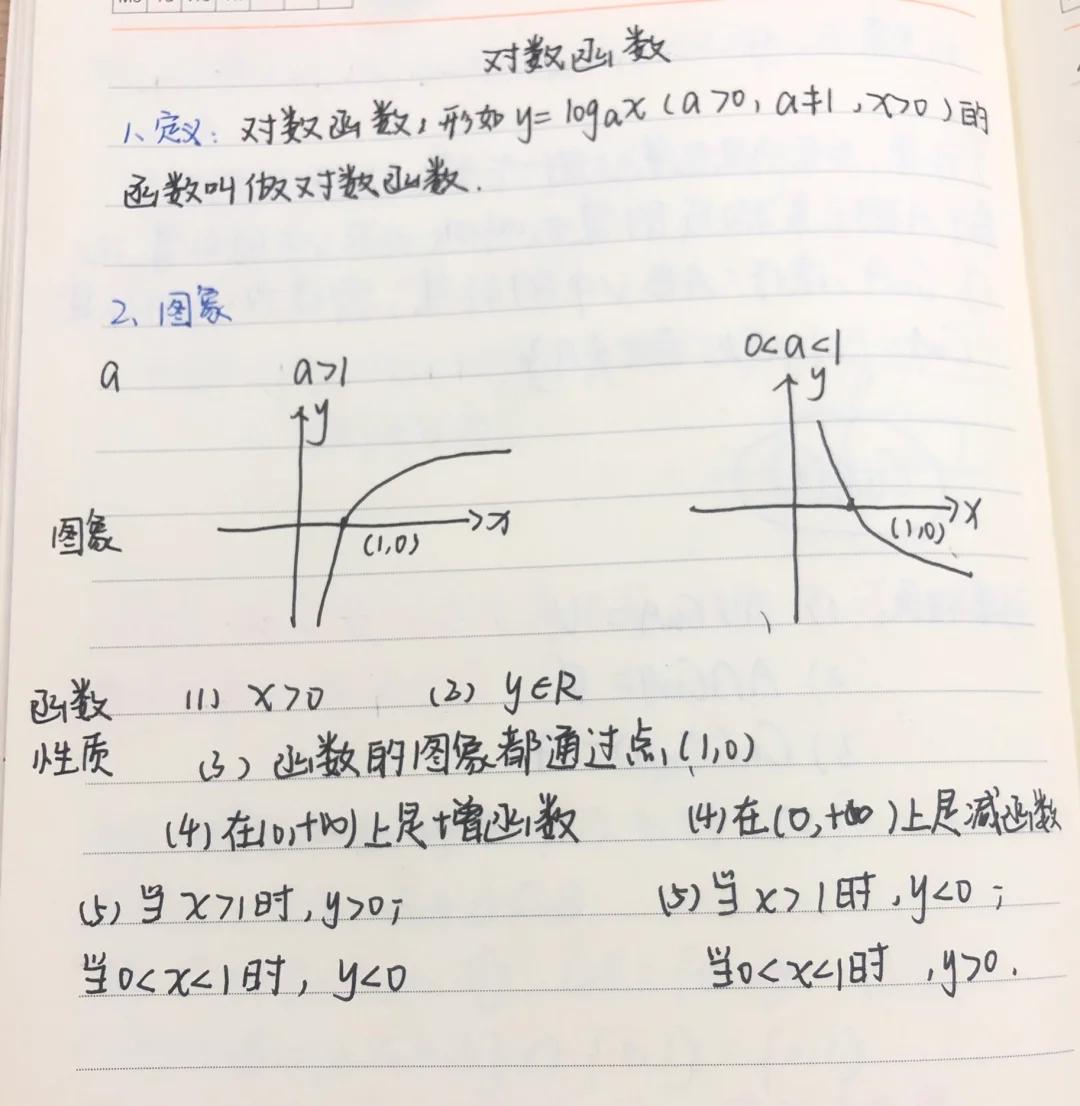 对数函数
1、定义：对数函数，形如 y= logₐx (a>0, a≠1, x>0) 的
函数叫做对数函数.
2、图象
a a>1 0<a<1
y y
图象 x x
(1,0) (1,0)
函数 (1) x>0 (2) y∈R
性质 (3) 函数的图象都通过点(1,0)
(4) 在(0,+∞)上是增函数 (4) 在(0,+∞)上是减函数
(5) 当 x>1时, y>0; (5) 当 x>1时, y<0;
当0<x<1时, y<0 当0<x<1时, y>0.